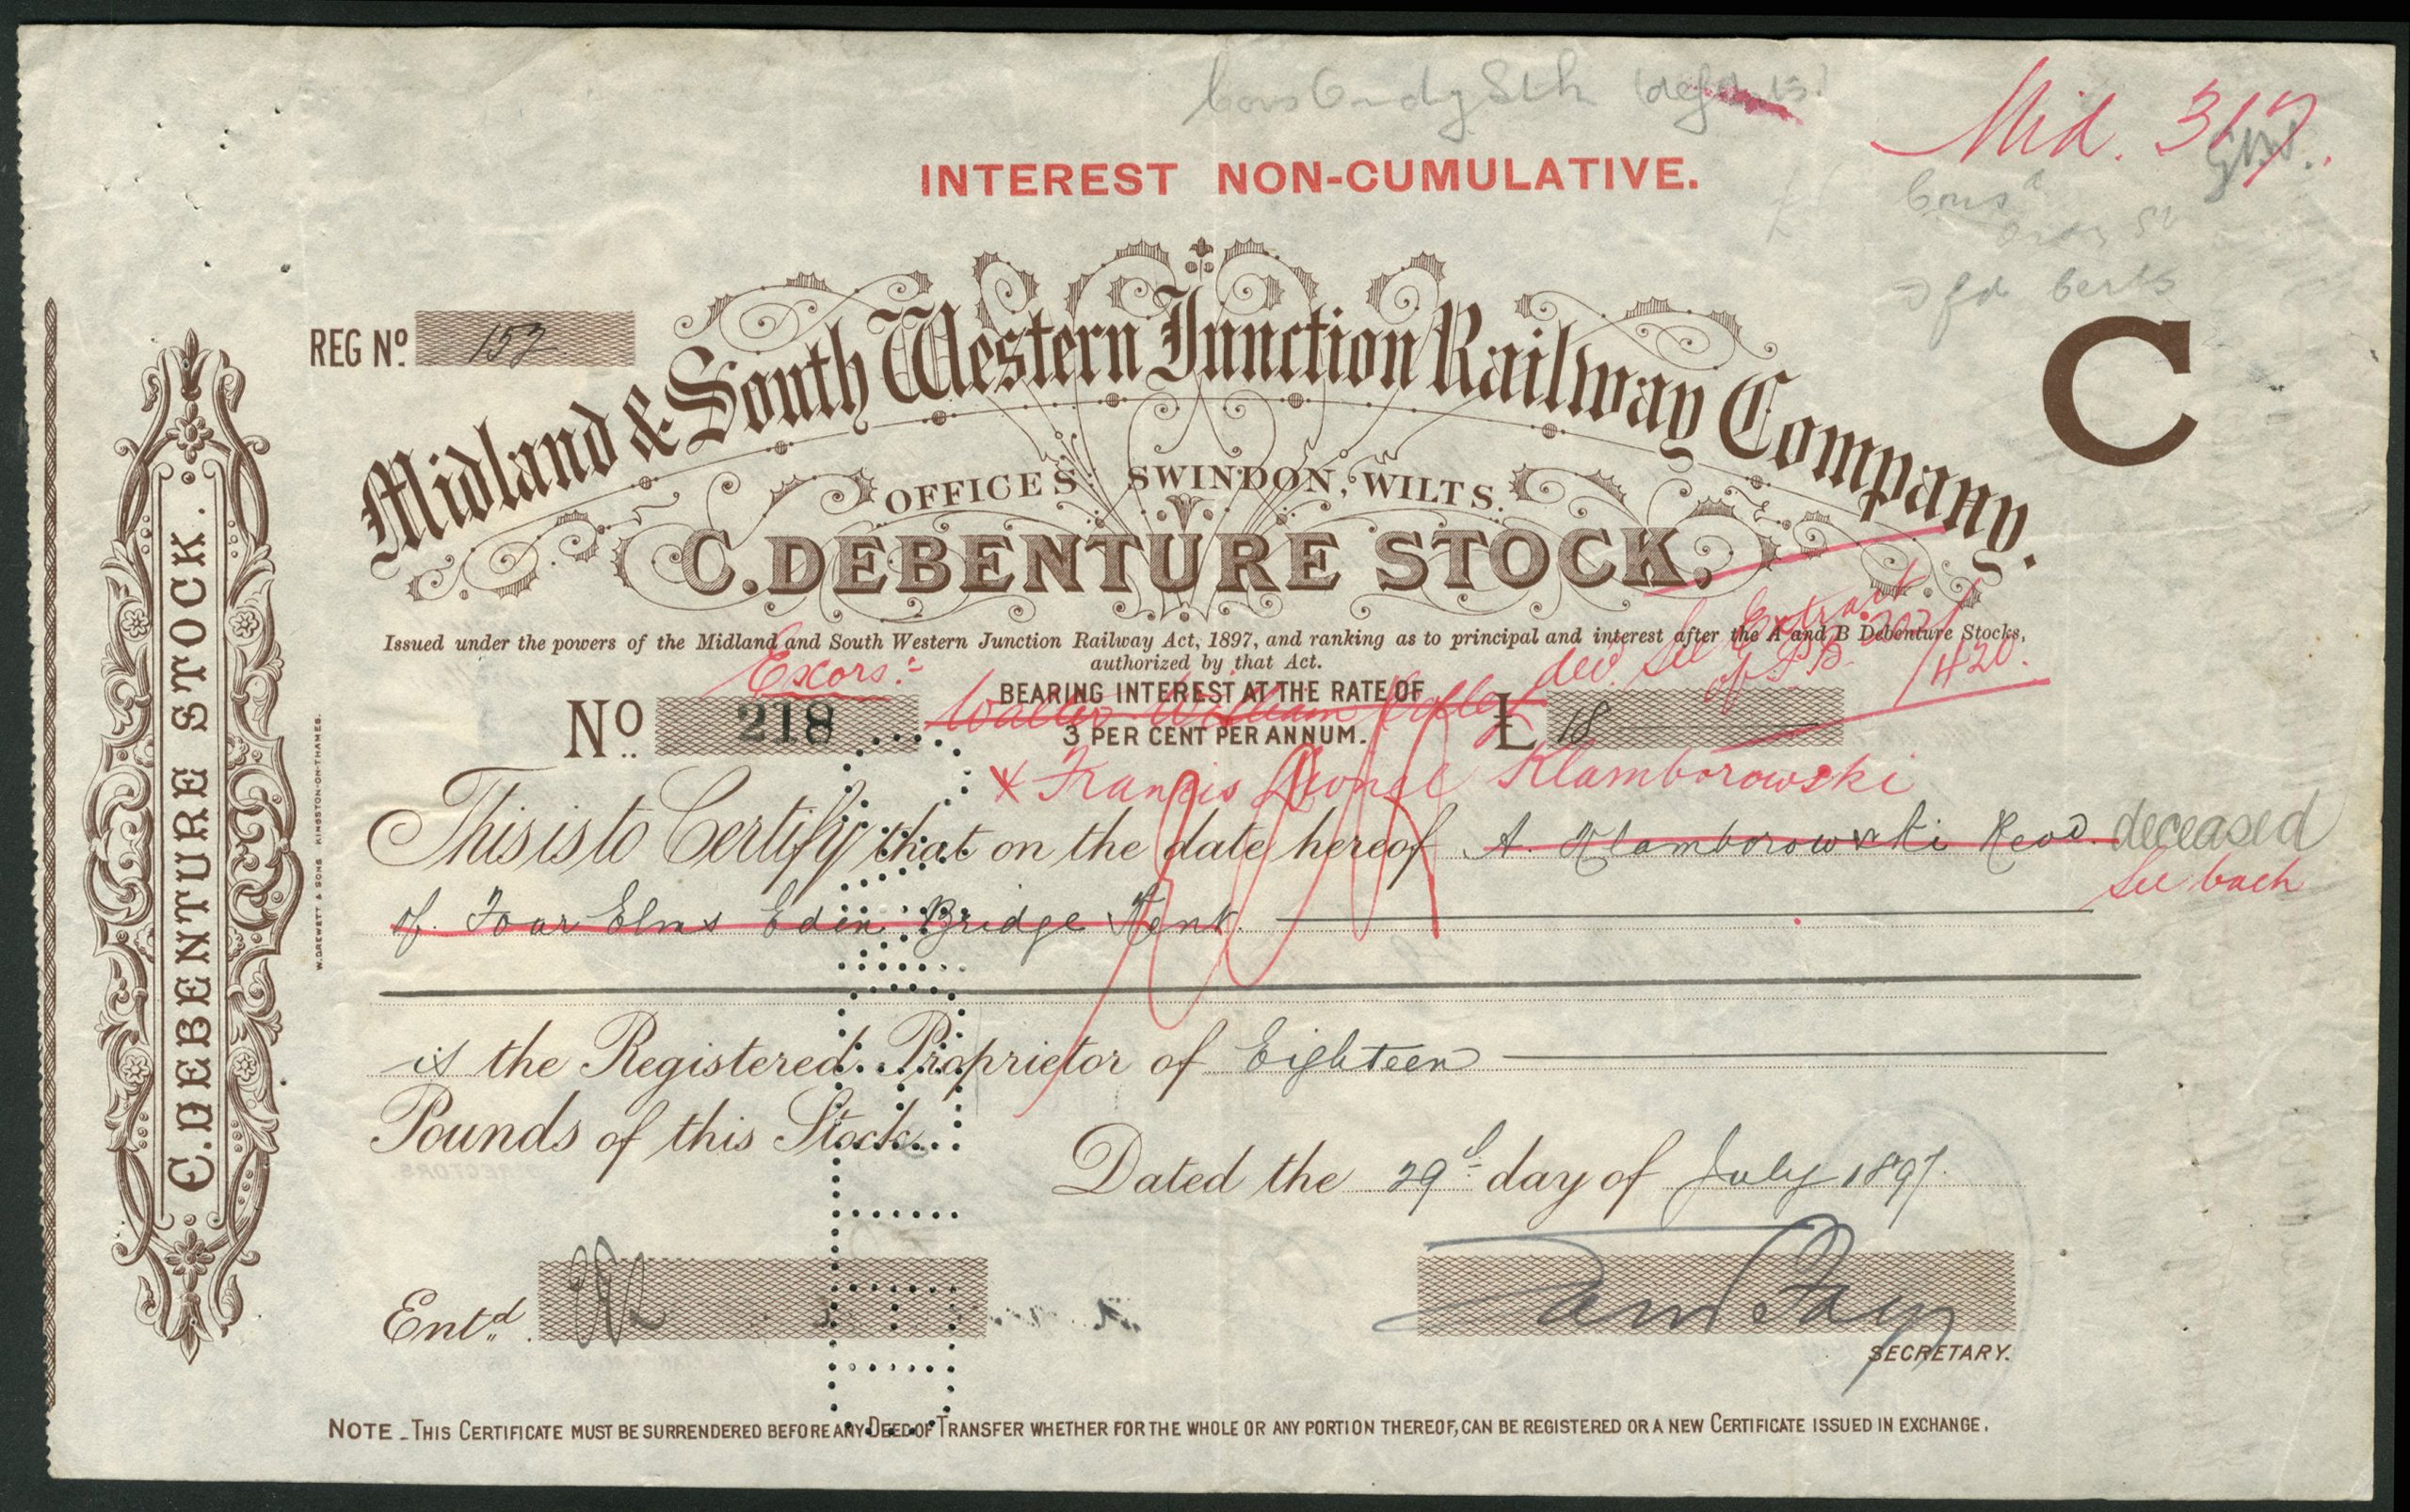 Mid. 317
INTEREST NON-CUMULATIVE.
REG No. 153
Midland & South Western Junction Railway Company.
C
OFFICES: SWINDON, WILTS.
C. DEBENTURE STOCK.
Issued under the powers of the Midland and South Western Junction Railway Act, 1897, and ranking as to principal and interest after the A and B Debenture Stocks,
authorized by that Act.
Excors:-
Walter William decd. See Extract
of P.B. 202/
/420.
No. 218
BEARING INTEREST AT THE RATE OF
3 PER CENT PER ANNUM.
£ 18
x Francis Lionel Klamborowski
This is to Certify that on the date hereof A. Klamborowski deceased
See back
of Four Elms Eden Bridge Kent.
is the Registered Proprietor of Eighteen
Pounds of this Stock.
Dated the 29th day of July 1897.
Entd.
Sam Fay
SECRETARY.
NOTE - THIS CERTIFICATE MUST BE SURRENDERED BEFORE ANY DEED OF TRANSFER WHETHER FOR THE WHOLE OR ANY PORTION THEREOF, CAN BE REGISTERED OR A NEW CERTIFICATE ISSUED IN EXCHANGE.
C. DEBENTURE STOCK.
W. DREWETT & SONS KINGSTON-ON-THAMES.